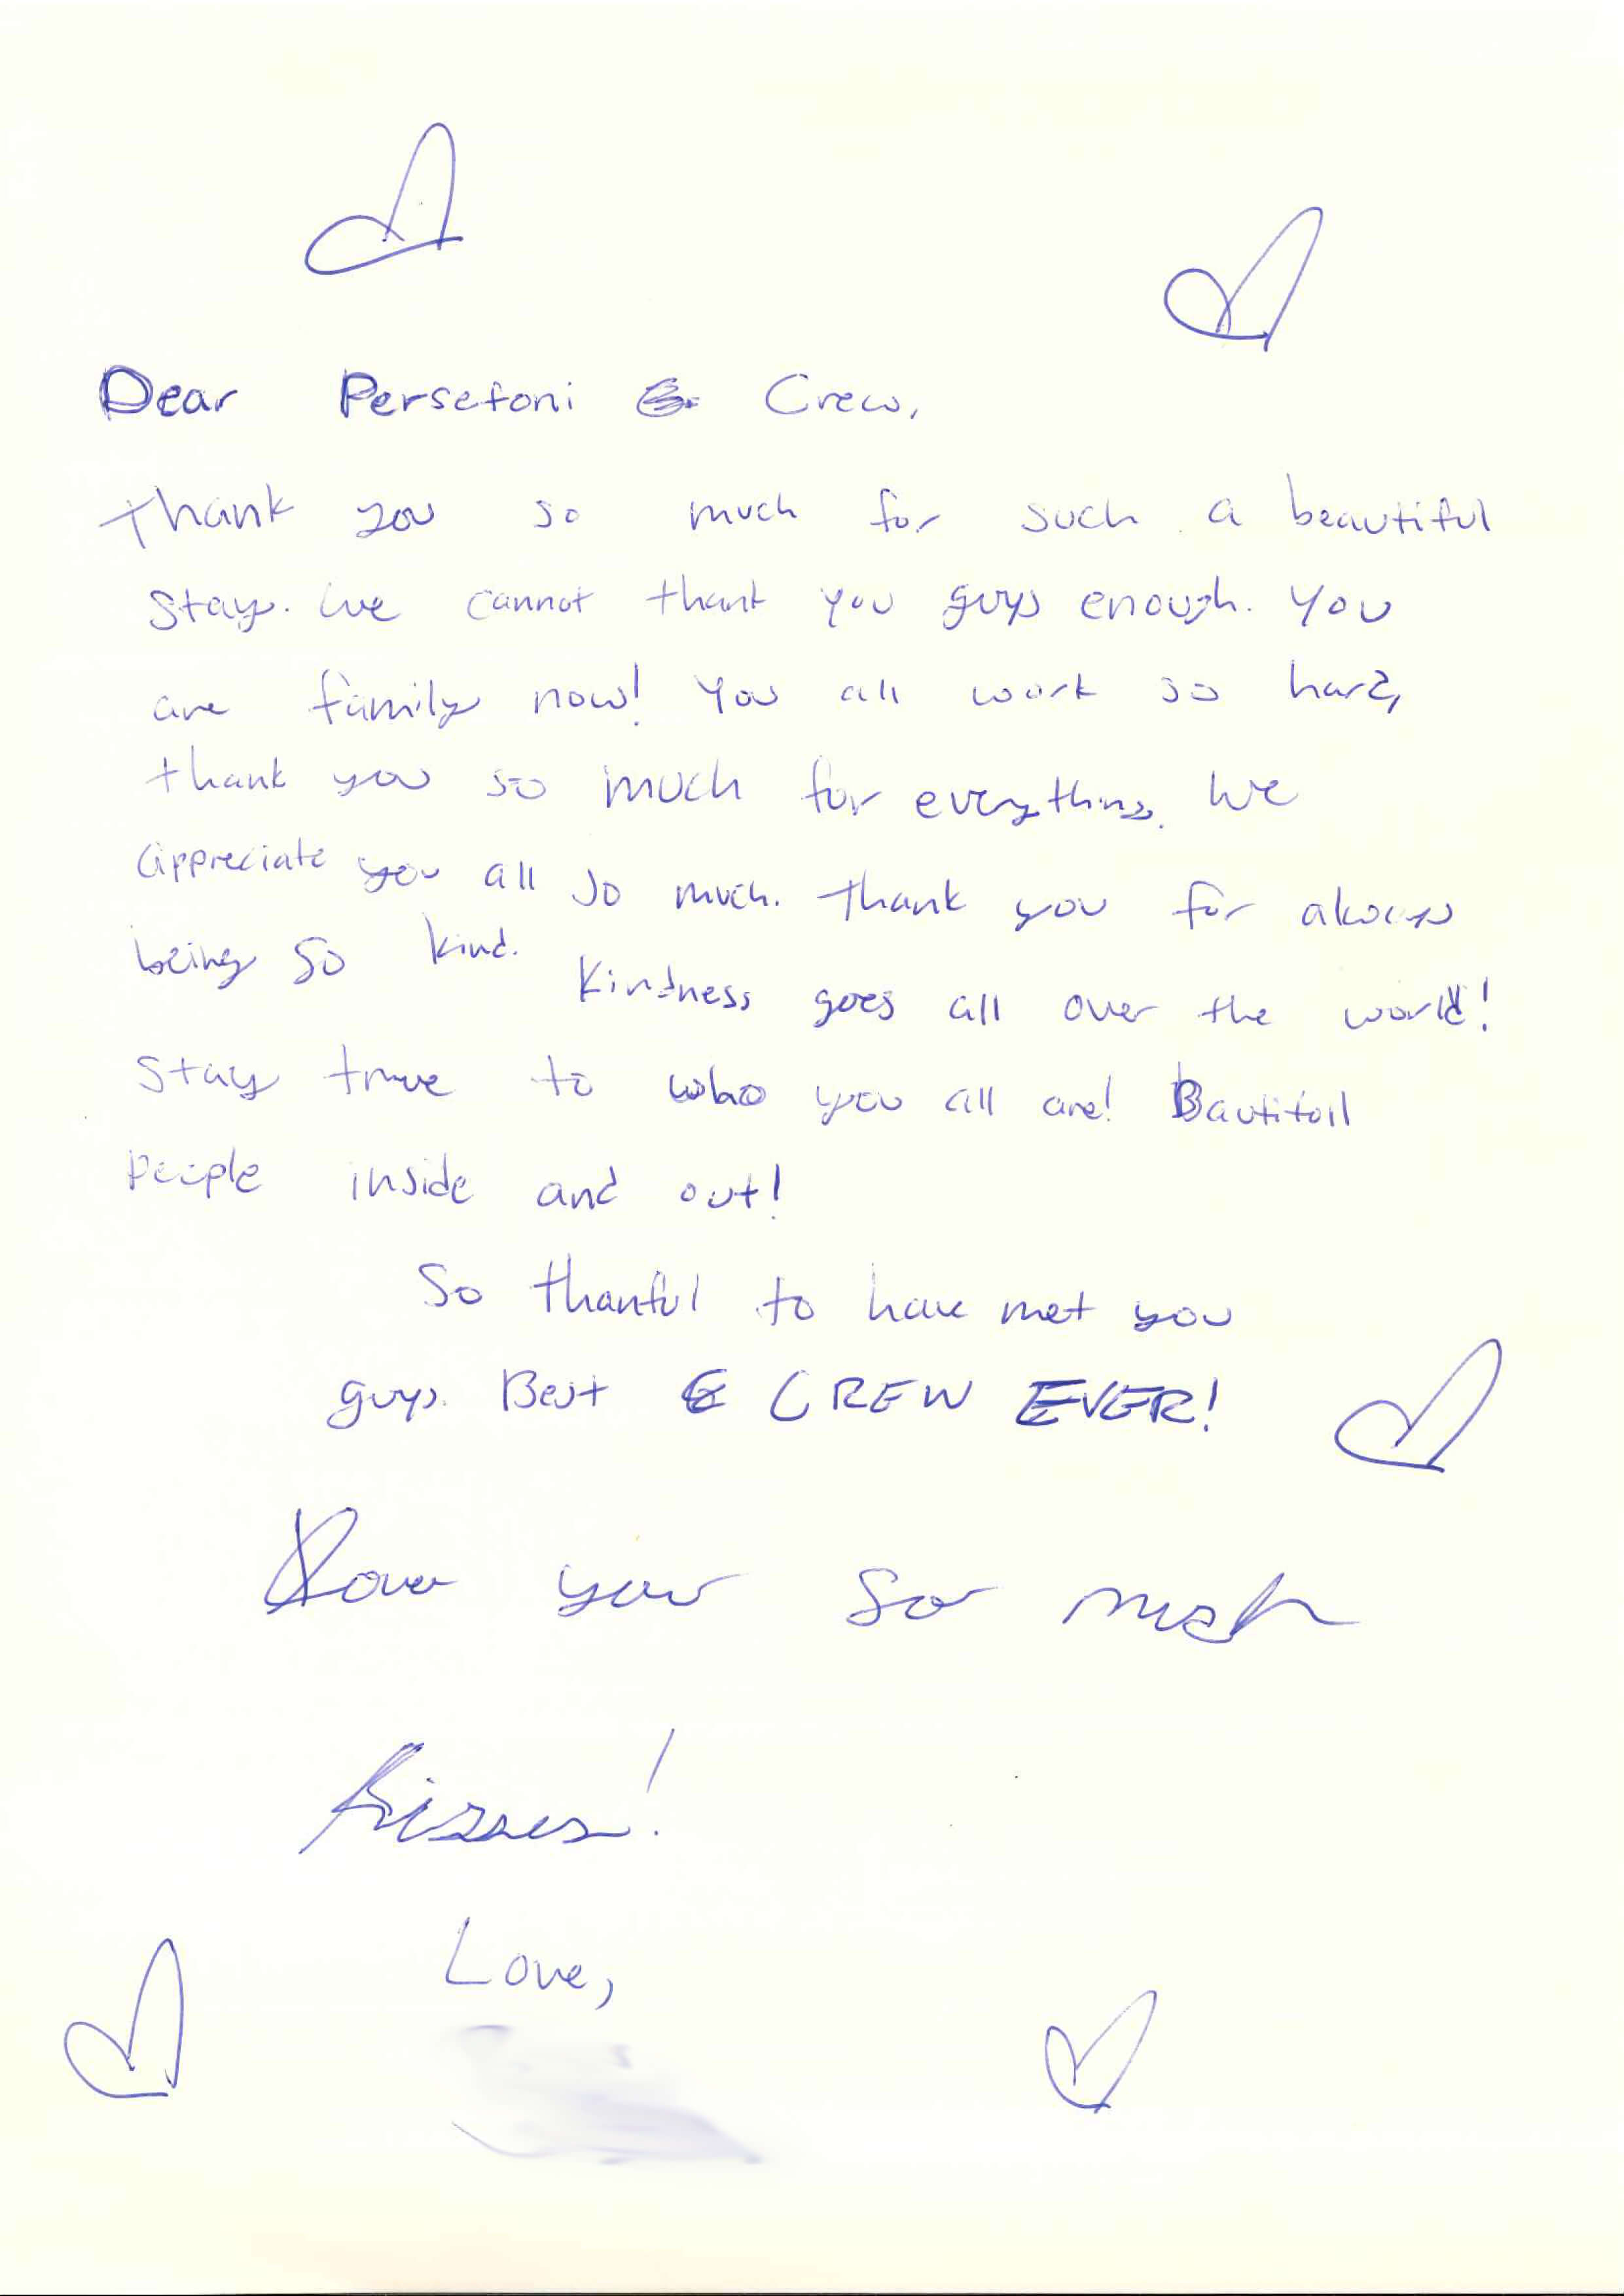 Dear Persefoni & Crew,
Thank you so much for such a beautiful
stay. We cannot thank you guys enough. You
are family now! You all work so hard,
thank you so much for everything. We
appreciate you all so much. Thank you for always
being so kind. Kindness goes all over the world!
Stay true to who you all are! Bautifull
People inside and out!
So thanful to have met you
guys. Best CREW EVER!
Love you so much
Kisses!
Love,